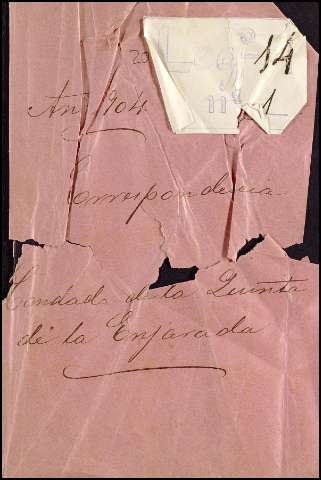 20
Leg.º 14
nº 1
Año 904
Correspondencia
Condado de la Quinta
de la Enjarada